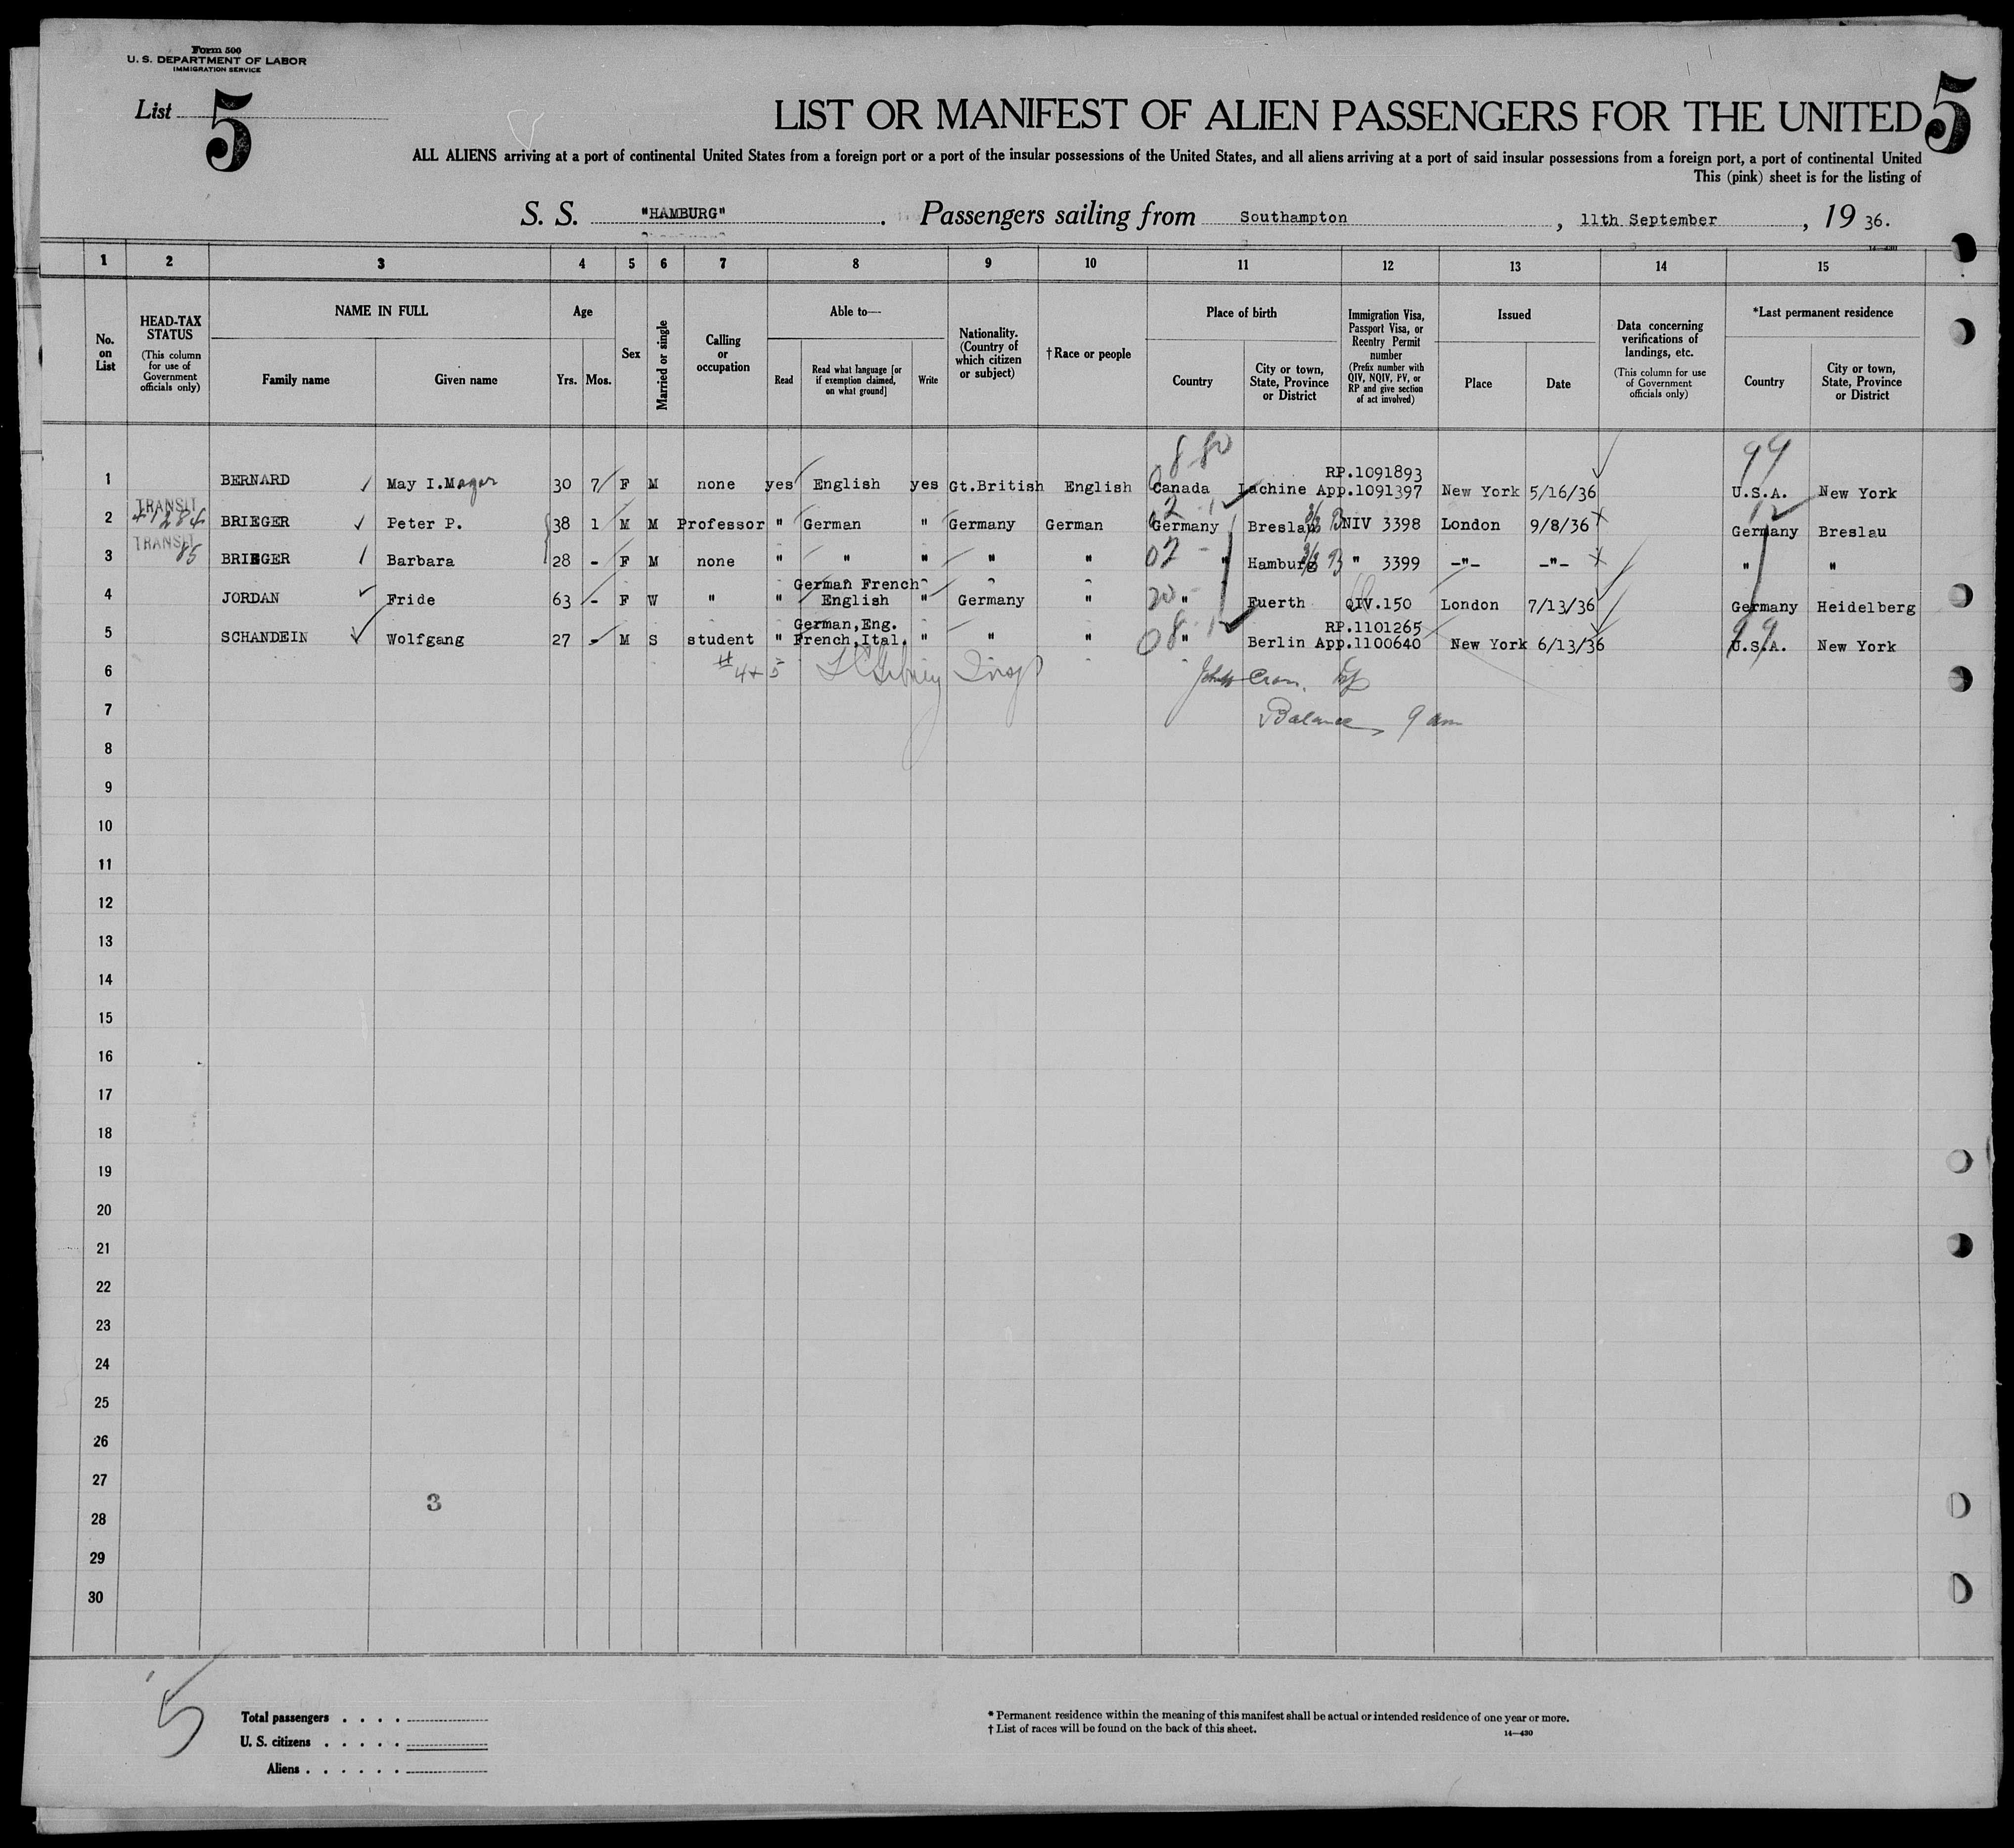 Form 500
U. S. DEPARTMENT OF LABOR
IMMIGRATION SERVICE
List 5
LIST OR MANIFEST OF ALIEN PASSENGERS FOR THE UNITED 5
ALL ALIENS arriving at a port of continental United States from a foreign port or a port of the insular possessions of the United States, and all aliens arriving at a port of said insular possessions from a foreign port, a port of continental United
This (pink) sheet is for the listing of
S. S. "HAMBURG". Passengers sailing from Southampton, 11th September, 19 36.
14—430
1 2 3 4 5 6 7 8 9 10 11 12 13 14 15
No. on List
HEAD-TAX STATUS (This column for use of Government officials only)
NAME IN FULL
Family name Given name
Age
Yrs. Mos.
Sex
Married or single
Calling or occupation
Able to—
Read
Read what language [or if exemption claimed, on what ground]
Write
Nationality. (Country of which citizen or subject)
† Race or people
Place of birth
Country
City or town, State, Province or District
Immigration Visa, Passport Visa, or Reentry Permit number (Prefix number with QIV, NQIV, PV, or RP and give section of act involved)
Issued
Place Date
Data concerning verifications of landings, etc. (This column for use of Government officials only)
*Last permanent residence
Country
City or town, State, Province or District
8-80 99
RP.1091893
1 BERNARD May I. Magor 30 7 F M none yes English yes Gt.British English Canada Lachine App.1091397 New York 5/16/36 U.S.A. New York
TRANSIT 02 - 1 12
2 41284 BRIEGER Peter P. 38 1 M M Professor " German " Germany German Germany Breslau NIV 3398 London 9/8/36 Germany Breslau
TRANSIT
3 85 BRIEGER Barbara 28 - F M none " " " " " 02 - " Hamburg " 3399 -"- -"- " "
German French
4 JORDAN Fride 63 - F W " " English " Germany " 20 - " Fuerth QIV.150 London 7/13/36 Germany Heidelberg
German,Eng. RP.1101265
5 SCHANDEIN Wolfgang 27 - M S student " French,Ital. " " " 08 - 1 " Berlin App.1100640 New York 6/13/36 99 U.S.A. New York
6 # 4 + 5 Insp
7 Balance 9 am
8
9
10
11
12
13
14
15
16
17
18
19
20
21
22
23
24
25
26
27
3
28
29
30
5
Total passengers . . . .
U. S. citizens . . . . .
Aliens . . . . . .
* Permanent residence within the meaning of this manifest shall be actual or intended residence of one year or more.
† List of races will be found on the back of this sheet.
14—430